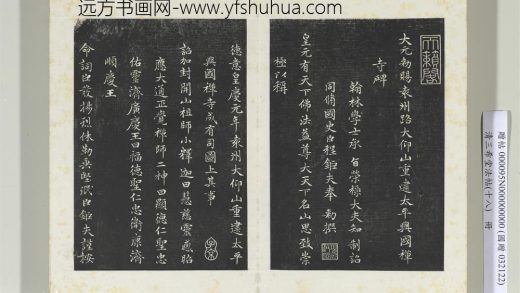 远方书画网-www.yfshuhua.com
天籟閣
大元勅賜袁州路大仰山重建太平興國禪
寺碑
翰林學士承旨榮祿大夫知制誥
同脩國史臣程鉅夫奉 勅撰
皇元有天下佛法蓋尊大天下名山思致崇
極以稱
德意皇慶元年袁州大仰山重建太平
興國禪寺成有司圖上其事
詔加封開山祖師小釋迦曰慧慈靈感昭
應大通正覺禪師二神曰顯德仁聖忠
佑靈濟廣慶王曰福德聖仁忠衛康濟
順慶王
命詞臣發揚休勒堅珉臣鉅夫謹按
贈帖 000095N000000000 (國贈 032122)
清三希堂法帖(十八) 冊